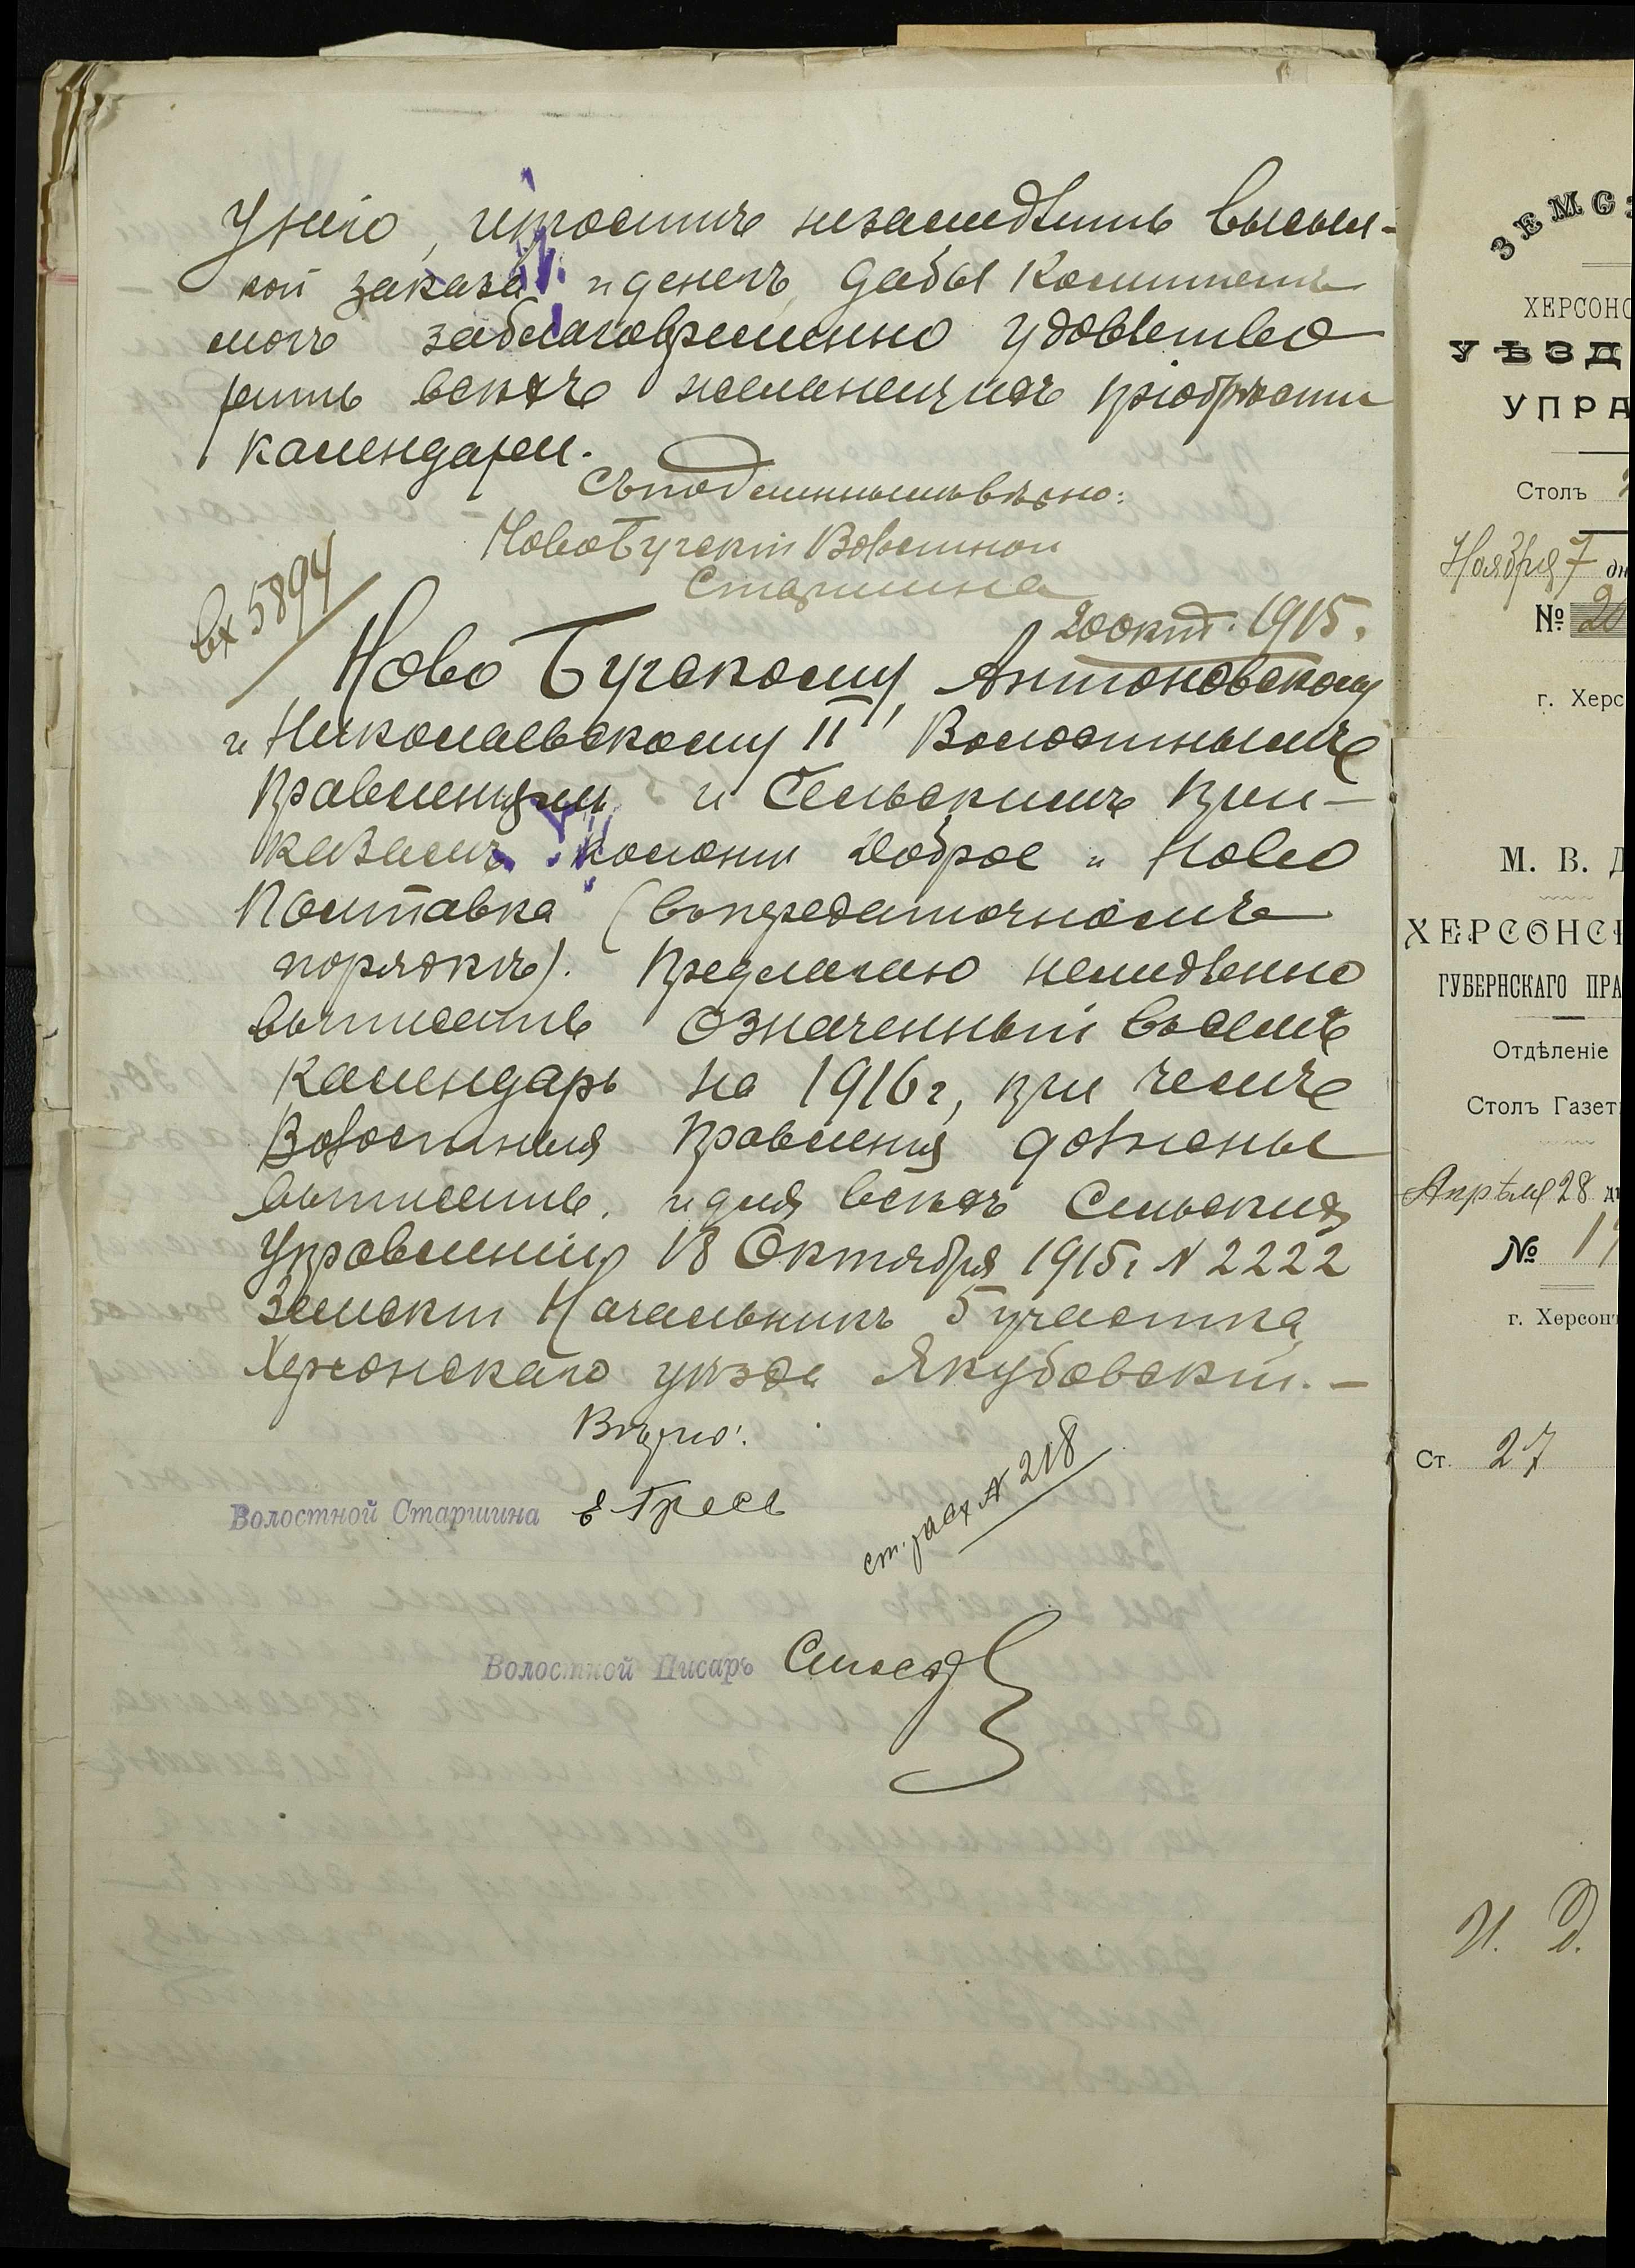 у него, и просить незамедлить высыл-
кой заказа и денегъ, дабы Комитетъ
могъ заблаговременно удовлетво
рить всѣхъ желающихъ пріобрѣсти
календари.
Съ подлиннымъ вѣрно:
Ново Бугскій Волостной
Старшина
20 окт. 1915.
вх 5894
Ново Бугскому, Антоновскому
и Николаевскому II Волостнымъ
Правленіямъ и Сельскимъ При-
казамъ колоніи Доброе и Ново
Полтавка (въ передаточномъ
порядкѣ). Предлагаю немедленно
выписать означенный въ семъ
календарь на 1916 г, при чемъ
Волостныя Правленія должны
выписать и для всѣхъ Сельскихъ
Управленій 18 Октября 1915 г N 2222
Земскій Начальникъ 5 участка
Херсонскаго уѣзда Якубовскій. —
Вѣрно:
Волостной Старшина
ст. расх N 218
Волостной Писарь
ЗЕМС
ХЕРСОНС
УѢЗД
УПРА
Столъ
Ноября 7 дн
№ 20
г. Херс
М. В. Д
ХЕРСОНСК
ГУБЕРНСКАГО ПРА
Отдѣленіе
Столъ Газет
Апрѣля 28 дн
№ 1
г. Херсонъ
Ст. 27
И. Д.